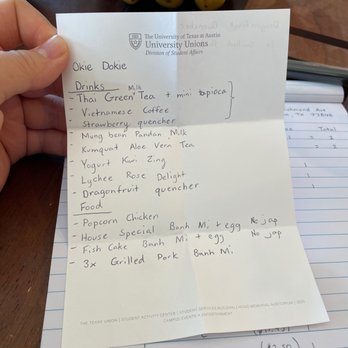 The University of Texas at Austin
University Unions
Division of Student Affairs
Okie Dokie
Drinks
Thai Green Milk Tea + mini tapioca
- Vietnamese Coffee
- Strawberry quencher
- Mung bean Pandan Milk
- Kumquat Aloe Vera Tea
- Yogurt Kiwi Zing
- Lychee Rose Delight
- Dragonfruit quencher
Food
- Popcorn Chicken
- House Special Banh Mi + egg No jap
- Fish Cake Banh Mi + egg No jap
- 3x Grilled Pork Banh Mi
THE TEXAS UNION | STUDENT ACTIVITY CENTER | STUDENT SERVICES BUILDING | HOGG MEMORIAL AUDITORIUM
CAMPUS EVENTS + ENTERTAINMENT
Total